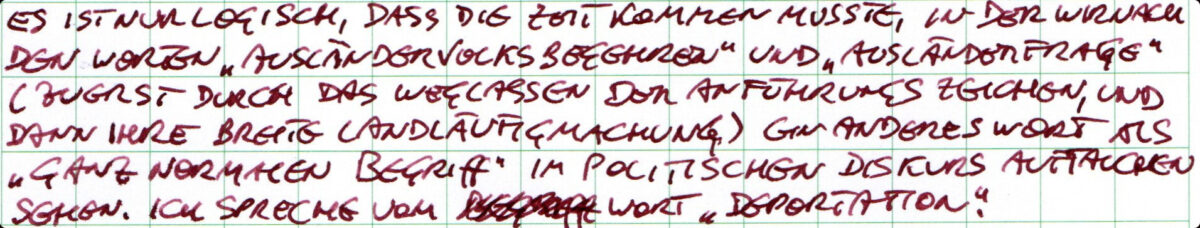 ES IST NUR LOGISCH, DASS DIE ZEIT KOMMEN MUSSTE, IN DER WIR NACH
DEN WORTEN „AUSLÄNDERVOLKSBEGEHREN“ UND „AUSLÄNDERFRAGE“
(ZUERST DURCH DAS WEGLASSEN DER ANFÜHRUNGSZEICHEN, UND
DANN IHRE BREITE LANDLÄUFIGMACHUNG) EIN ANDERES WORT ALS
„GANZ NORMALEN BEGRIFF“ IM POLITISCHEN DISKURS AUFTAUCHEN
SEHEN. ICH SPRECHE VOM WORT „DEPORTATION“.